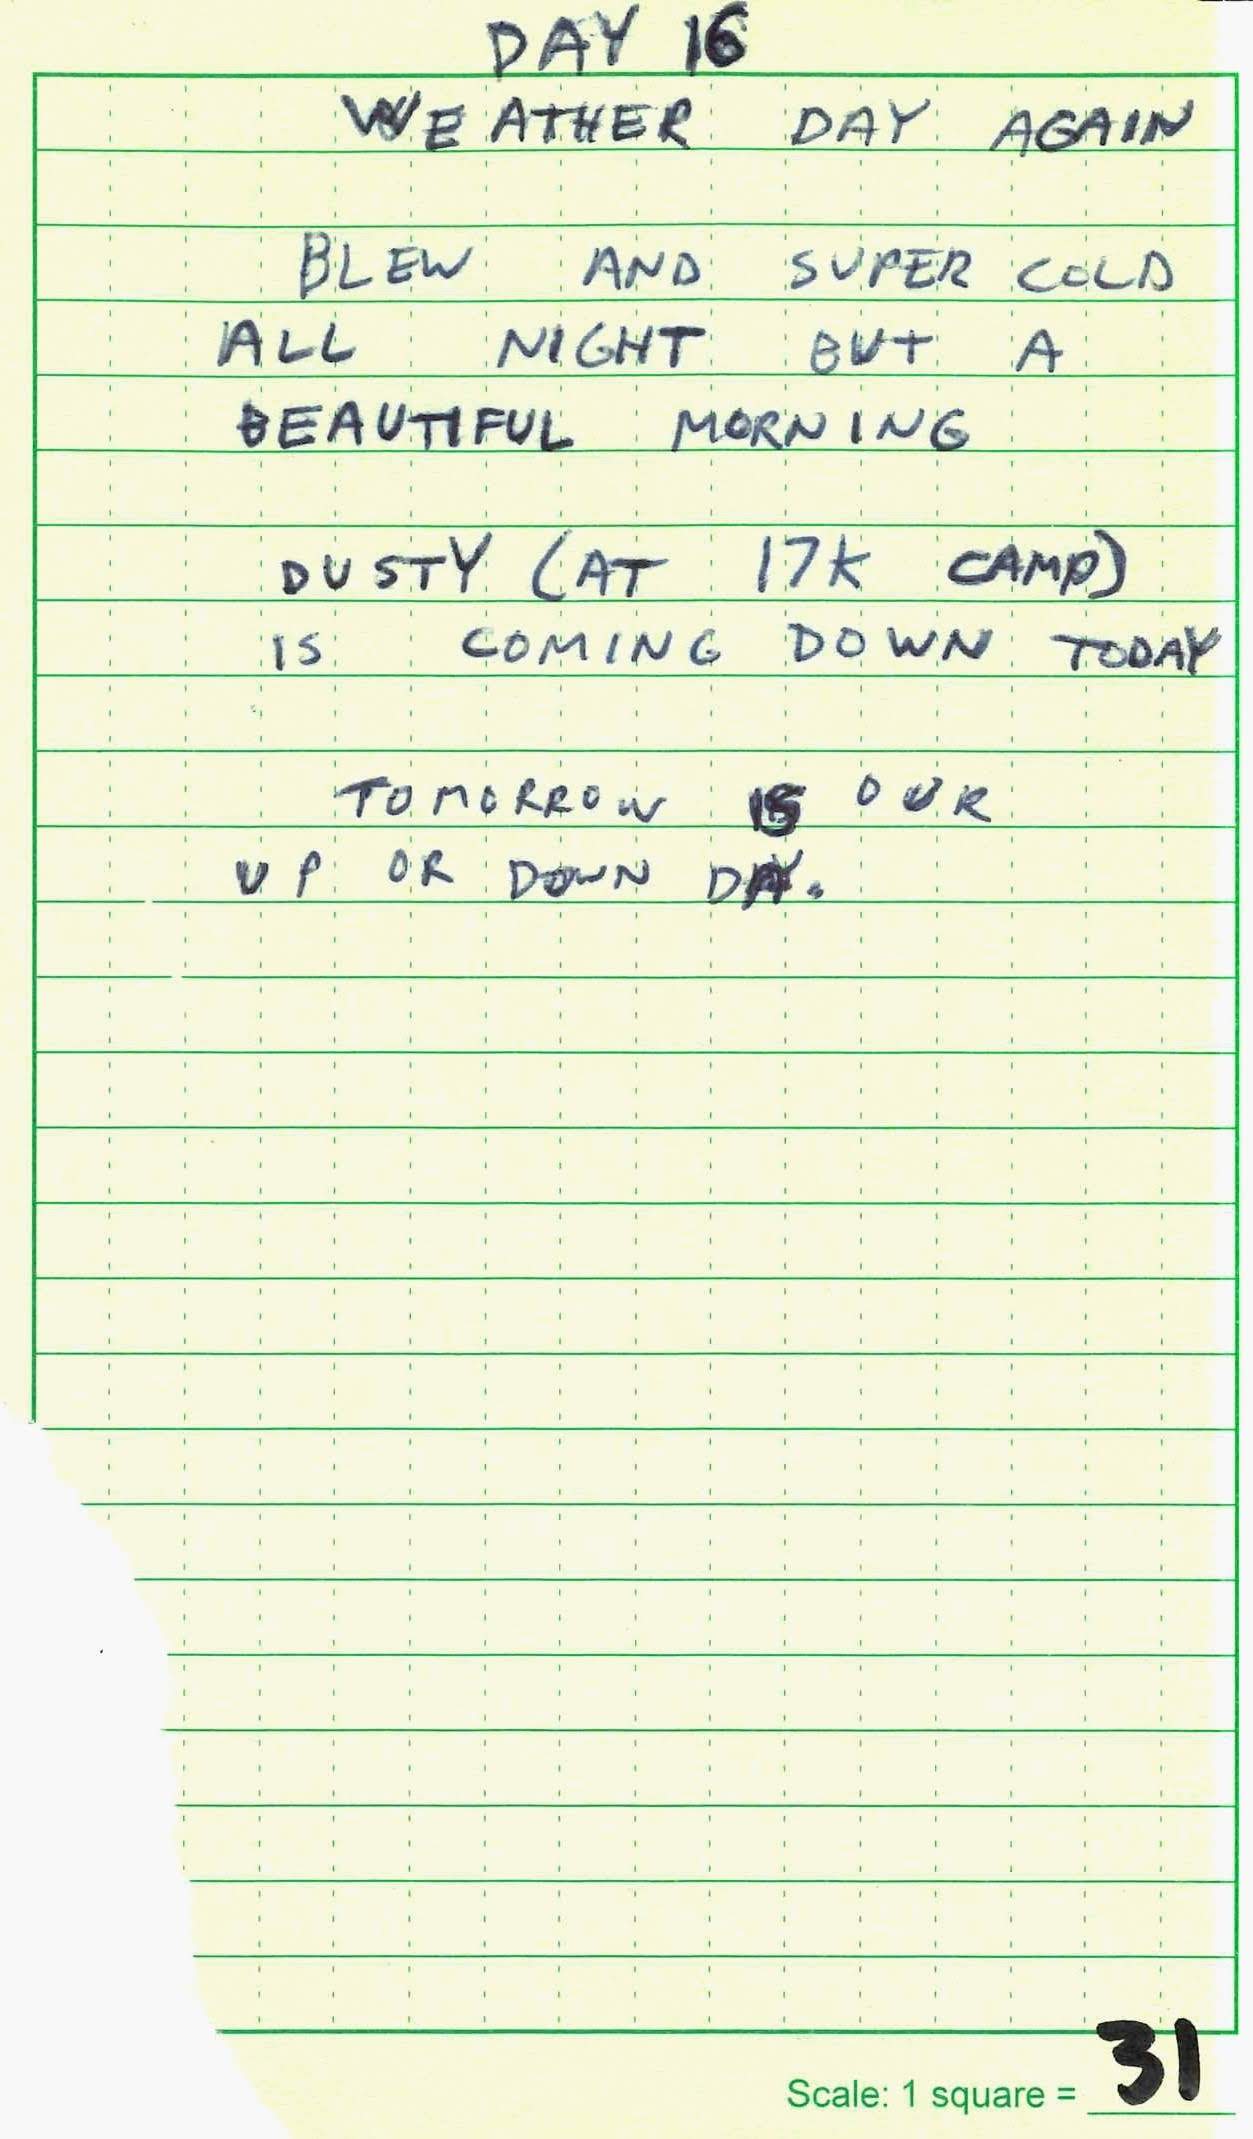 DAY 16
WEATHER DAY AGAIN
BLEW AND SUPER COLD
ALL NIGHT BUT A
BEAUTIFUL MORNING
DUSTY (AT 17K CAMP)
IS COMING DOWN TODAY
TOMORROW IS OUR
UP OR DOWN DAY.
Scale: 1 square = 31